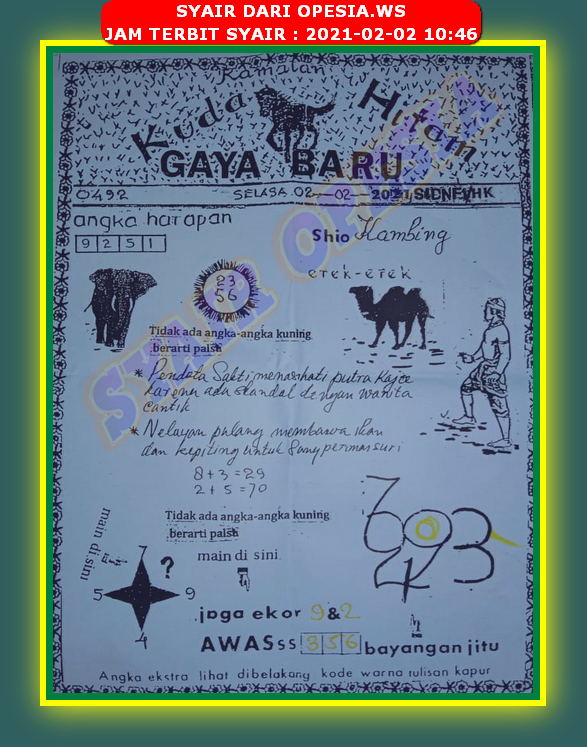 SYAIR DARI OPESIA.WS
JAM TERBIT SYAIR : 2021-02-02 10:46
Ramalan
Kuda Hitam
GAYA BARU
0492 SELASA 02-02-2021 SIDNEY HK
angka harapan
9 2 5 1
Shio Kambing
erek-erek
23
56
Tidak ada angka-angka kuning
berarti palsu
SYAIR OPESIA
* Pendeta Sakti menasehati putra
karena ada skandal dengan wanita
cantik
* Nelayan pulang membawa ikan
dan kepiting untuk Sang permaisuri
8+3=29
2+5=70
Tidak ada angka-angka kuning
berarti palsu
main di sini
main di.sini
7
5 9
4
?
7
6 0 3
4 2
jaga ekor 9 & 2
AWASss 3 5 6 bayangan jitu
Angka ekstra lihat dibelakang kode warna tulisan kapur